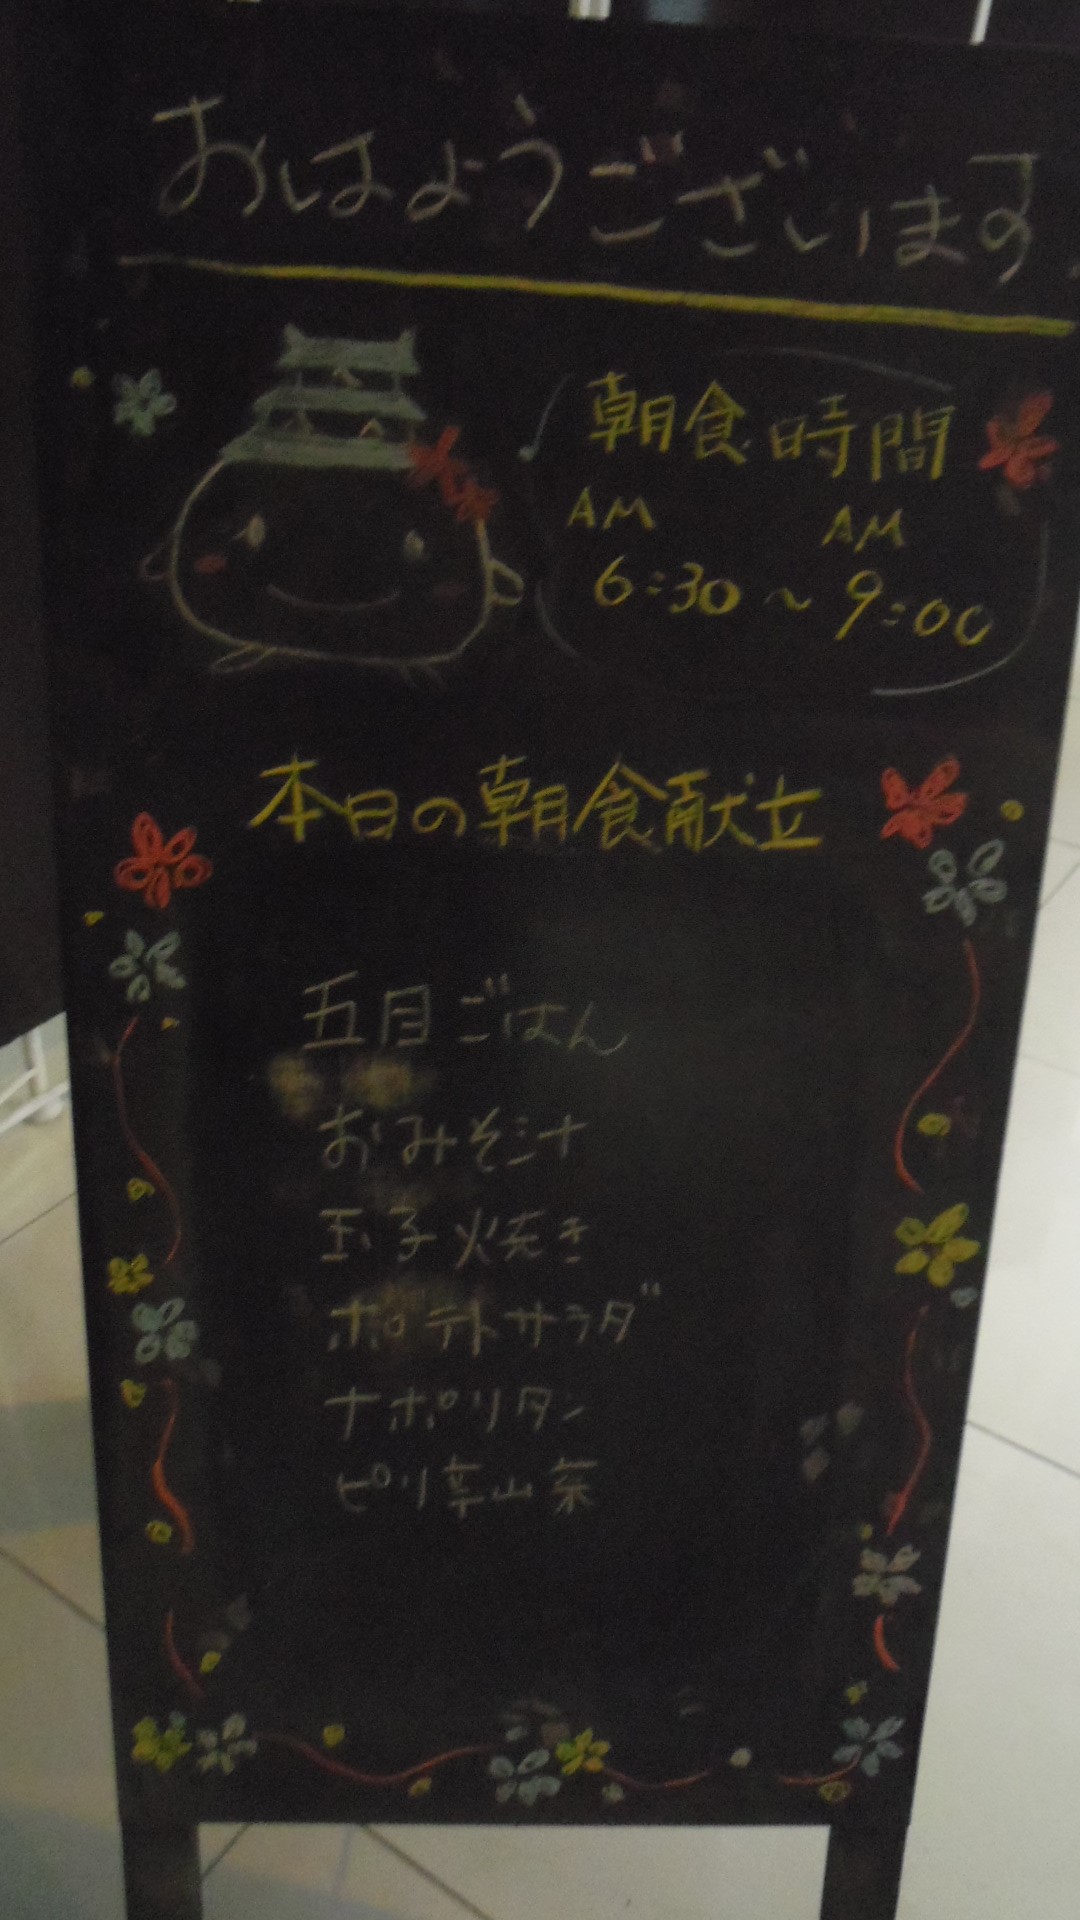 おはようございます
朝食時間
AM AM
6:30～9:00
本日の朝食献立
五目ごはん
おみそ汁
玉子焼き
ポテトサラダ
ナポリタン
ピリ辛山菜